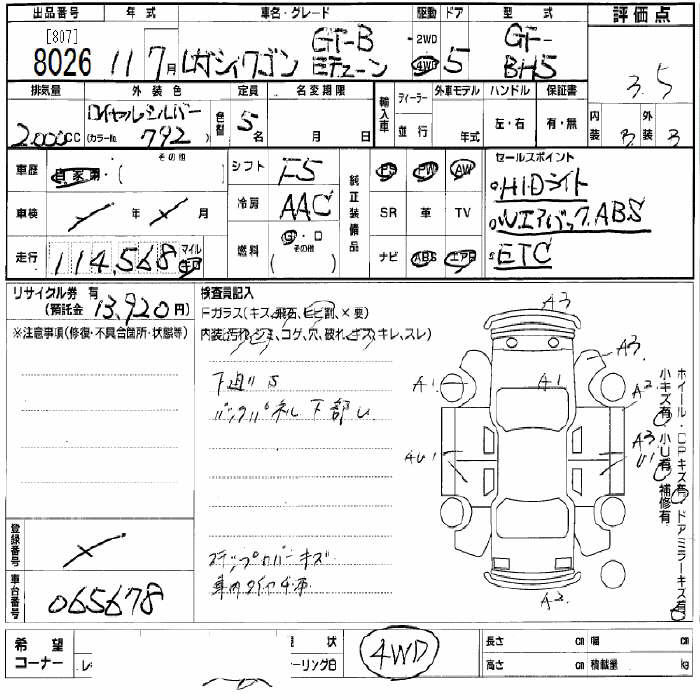 出品番号 年式 車名・グレード 駆動 ドア 型式 評価点
[807]
8026 11 7月 レガシィワゴン GT-B Eチューン 2WD 4WD 5 GF-BH5 3.5
排気量 外装色 定員 名変期限 輸入車 ディーラー 外車モデル ハンドル 保証書 内装 外装
2,000CC ロイヤルシルバー (カラーNo. 792) 色替 5名 月 日 並行 年式 左・右 有・無 3 3
車歴 自家用・( その他 ) シフト F5 純正装備品 PS PW AW セールスポイント
車検 年 月 冷房 AAC SR 革 TV ○HIDライト
走行 114,568 マイル キロ 燃料 G・D その他 ( ) ナビ ABS エアB ○WエアバックABS
○ETC
リサイクル券 有 (預託金 13,920円) 検査員記入
Fガラス(キズ,飛石,ヒビ割,×要)
※注意事項(修復・不具合箇所・状態等) 内装:汚れ,シミ,コゲ,穴,破れ,キズ,キレ,スレ)
下廻りS
バックパネル下部U
A3
A3
A1 A1 A2
AU1 A3
U1
A2
ホイール・Dドアミラーキズ有
小キズ有 小U有 補修有
登録番号
ステップカバーキズ
車内タイヤ4本
車台番号 065678
希望コーナー 現状 4WD 長さ cm 幅 cm
高さ cm 積載量 kg